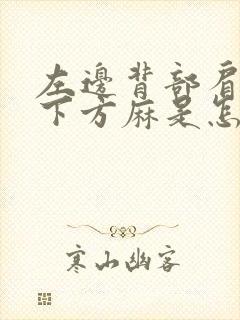 左邊背部肩
下方麻是怎
寒山幽客